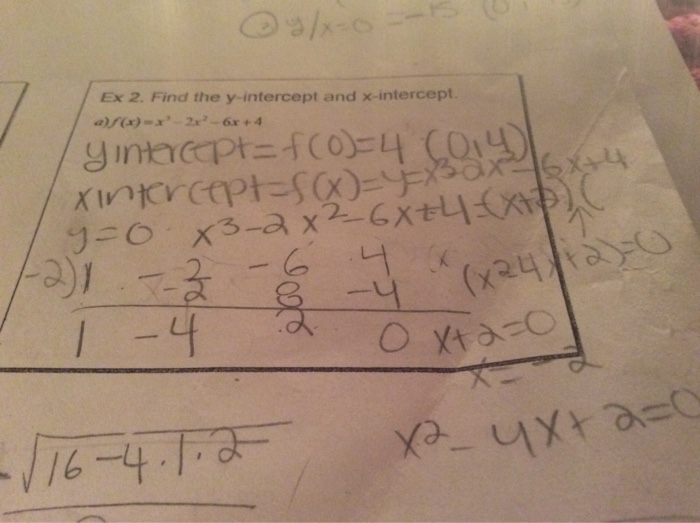 ② y/x=0 = -15 (0,
Ex 2. Find the y-intercept and x-intercept.
a) f(x)=x³-2x²-6x+4
y intercept=f(0)=4 (0,4)
x intercept=f(x)=y=x³-2x²-6x+4
y=0 x³-2x²-6x+4=(x+2)(
(x²-4x+2)=0
-2) 1 -2 -6 4
-2 8 -4
1 -4 2 0 x+2=0
x=-2
x²-4x+2=0
-√16-4.1.2